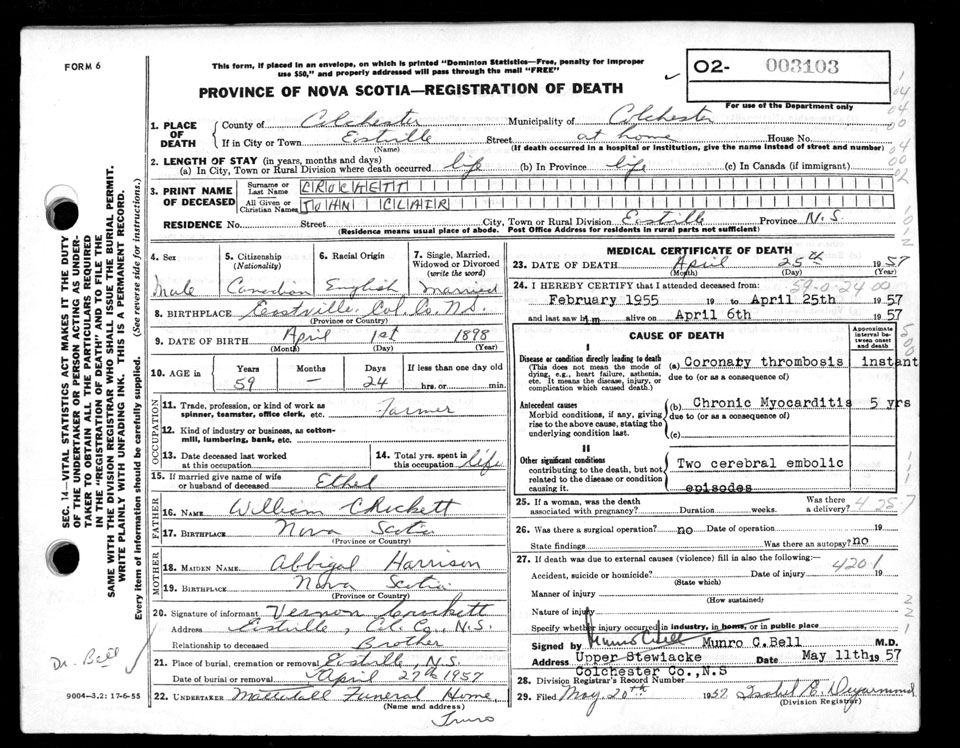 FORM 6
This form, if placed in an envelope, on which is printed "Dominion Statistics—Free, penalty for improper
use $50," and properly addressed will pass through the mail "FREE"
02- 003103
PROVINCE OF NOVA SCOTIA—REGISTRATION OF DEATH
For use of the Department only
1. PLACE OF DEATH
County of Colchester Municipality of Colchester
If in City or Town Eastville Street at home House No.
(Name) (If death occurred in a hospital or institution, give the name instead of street and number)
2. LENGTH OF STAY (in years, months and days)
(a) In City, Town or Rural Division where death occurred life (b) In Province life (c) In Canada (if immigrant)
3. PRINT NAME OF DECEASED
Surname or Last Name CROCKETT
All Given or Christian Names JOHN CLAIR
RESIDENCE No. Street City, Town or Rural Division Eastville Province N.S.
(Residence means usual place of abode. Post Office Address for residents in rural parts not sufficient)
4. Sex Male
5. Citizenship (Nationality) Canadian
6. Racial Origin English
7. Single, Married, Widowed or Divorced (write the word) Married
8. BIRTHPLACE Eastville Col. Co. N.S.
(Province or Country)
9. DATE OF BIRTH April 1st 1898
(Month) (Day) (Year)
10. AGE in Years 59 Months — Days 24 If less than one day old hrs. or min.
OCCUPATION
11. Trade, profession, or kind of work as spinner, teamster, office clerk, etc. Farmer
12. Kind of industry or business, as cotton-mill, lumbering, bank, etc.
13. Date deceased last worked at this occupation
14. Total yrs. spent in this occupation life
15. If married give name of wife or husband of deceased Ethel
FATHER
16. NAME William Crockett
17. BIRTHPLACE Nova Scotia
(Province or Country)
MOTHER
18. MAIDEN NAME Abbigal Harrison
19. BIRTHPLACE Nova Scotia
(Province or Country)
20. Signature of informant Vernon Crockett
Address Eastville, Col. Co., N.S.
Relationship to deceased Brother
21. Place of burial, cremation or removal Eastville, N.S.
Date of burial or removal April 27th 1957
22. UNDERTAKER Mattatall Funeral Home
(Name and address)
Truro
MEDICAL CERTIFICATE OF DEATH
23. DATE OF DEATH April 25th 1957
(Month) (Day) (Year)
59-0-24 00
24. I HEREBY CERTIFY that I attended deceased from:
February 1955 19 to April 25th 1957
and last saw him alive on April 6th 1957
CAUSE OF DEATH
Approximate interval between onset and death
I
Disease or condition directly leading to death
(This does not mean the mode of dying, e.g., heart failure, asthenia, etc. It means the disease, injury, or complication which caused death.)
(a) Coronary thrombosis instant
due to (or as a consequence of)
Antecedent causes
Morbid conditions, if any, giving rise to the above cause, stating the underlying condition last.
(b) Chronic Myocarditis 5 yrs
due to (or as a consequence of)
(c)
II
Other significant conditions
contributing to the death, but not related to the disease or condition causing it.
Two cerebral embolic
episodes
25. If a woman, was the death associated with pregnancy? Duration weeks. Was there a delivery?
4 25 7
26. Was there a surgical operation? no Date of operation 19
State findings Was there an autopsy? no
27. If death was due to external causes (violence) fill in also the following:—
4201
Accident, suicide or homicide? Date of injury 19
(State which)
Manner of injury
(How sustained)
Nature of injury
Specify whether injury occurred in industry, in home, or in public place
Signed by Munro C Bell Munro C.Bell M.D.
Address Upper Stewiacke Date May 11th 1957
Colchester Co.,N.S
28. Division Registrar's Record Number
29. Filed May 20th 1957 Isobel E.
(Division Registrar)
SEC. 14—VITAL STATISTICS ACT MAKES IT THE DUTY
OF THE UNDERTAKER OR PERSON ACTING AS UNDER-
TAKER TO OBTAIN ALL THE PARTICULARS REQUIRED
IN THE "REGISTRATION OF DEATH" AND TO FILE THE
SAME WITH THE DIVISION REGISTRAR WHO SHALL ISSUE THE BURIAL PERMIT.
WRITE PLAINLY WITH UNFADING INK. THIS IS A PERMANENT RECORD.
Every item of information should be carefully supplied. (See reverse side for instructions.)
Dr. Bell
9004—3.2: 17-6-55